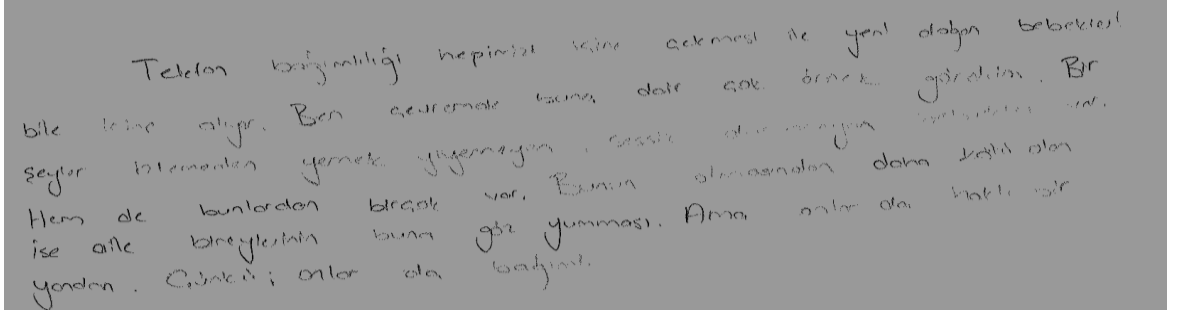 Telefon bağımlılığı hepimizi içine çekmesi ile yeni doğan bebekleri
bile içine alıyor. Ben çevremde buna dair çok örnek gördüm. Bir
şeyler izlemeden yemek yiyemeyen, sessiz var.
Hem de bunlardan birçok var. Bunun olmasından daha kötü olan
ise aile bireylerinin buna göz yumması. Ama onlar da haklı bir
yönden. Çünkü; onlar da bağımlı.